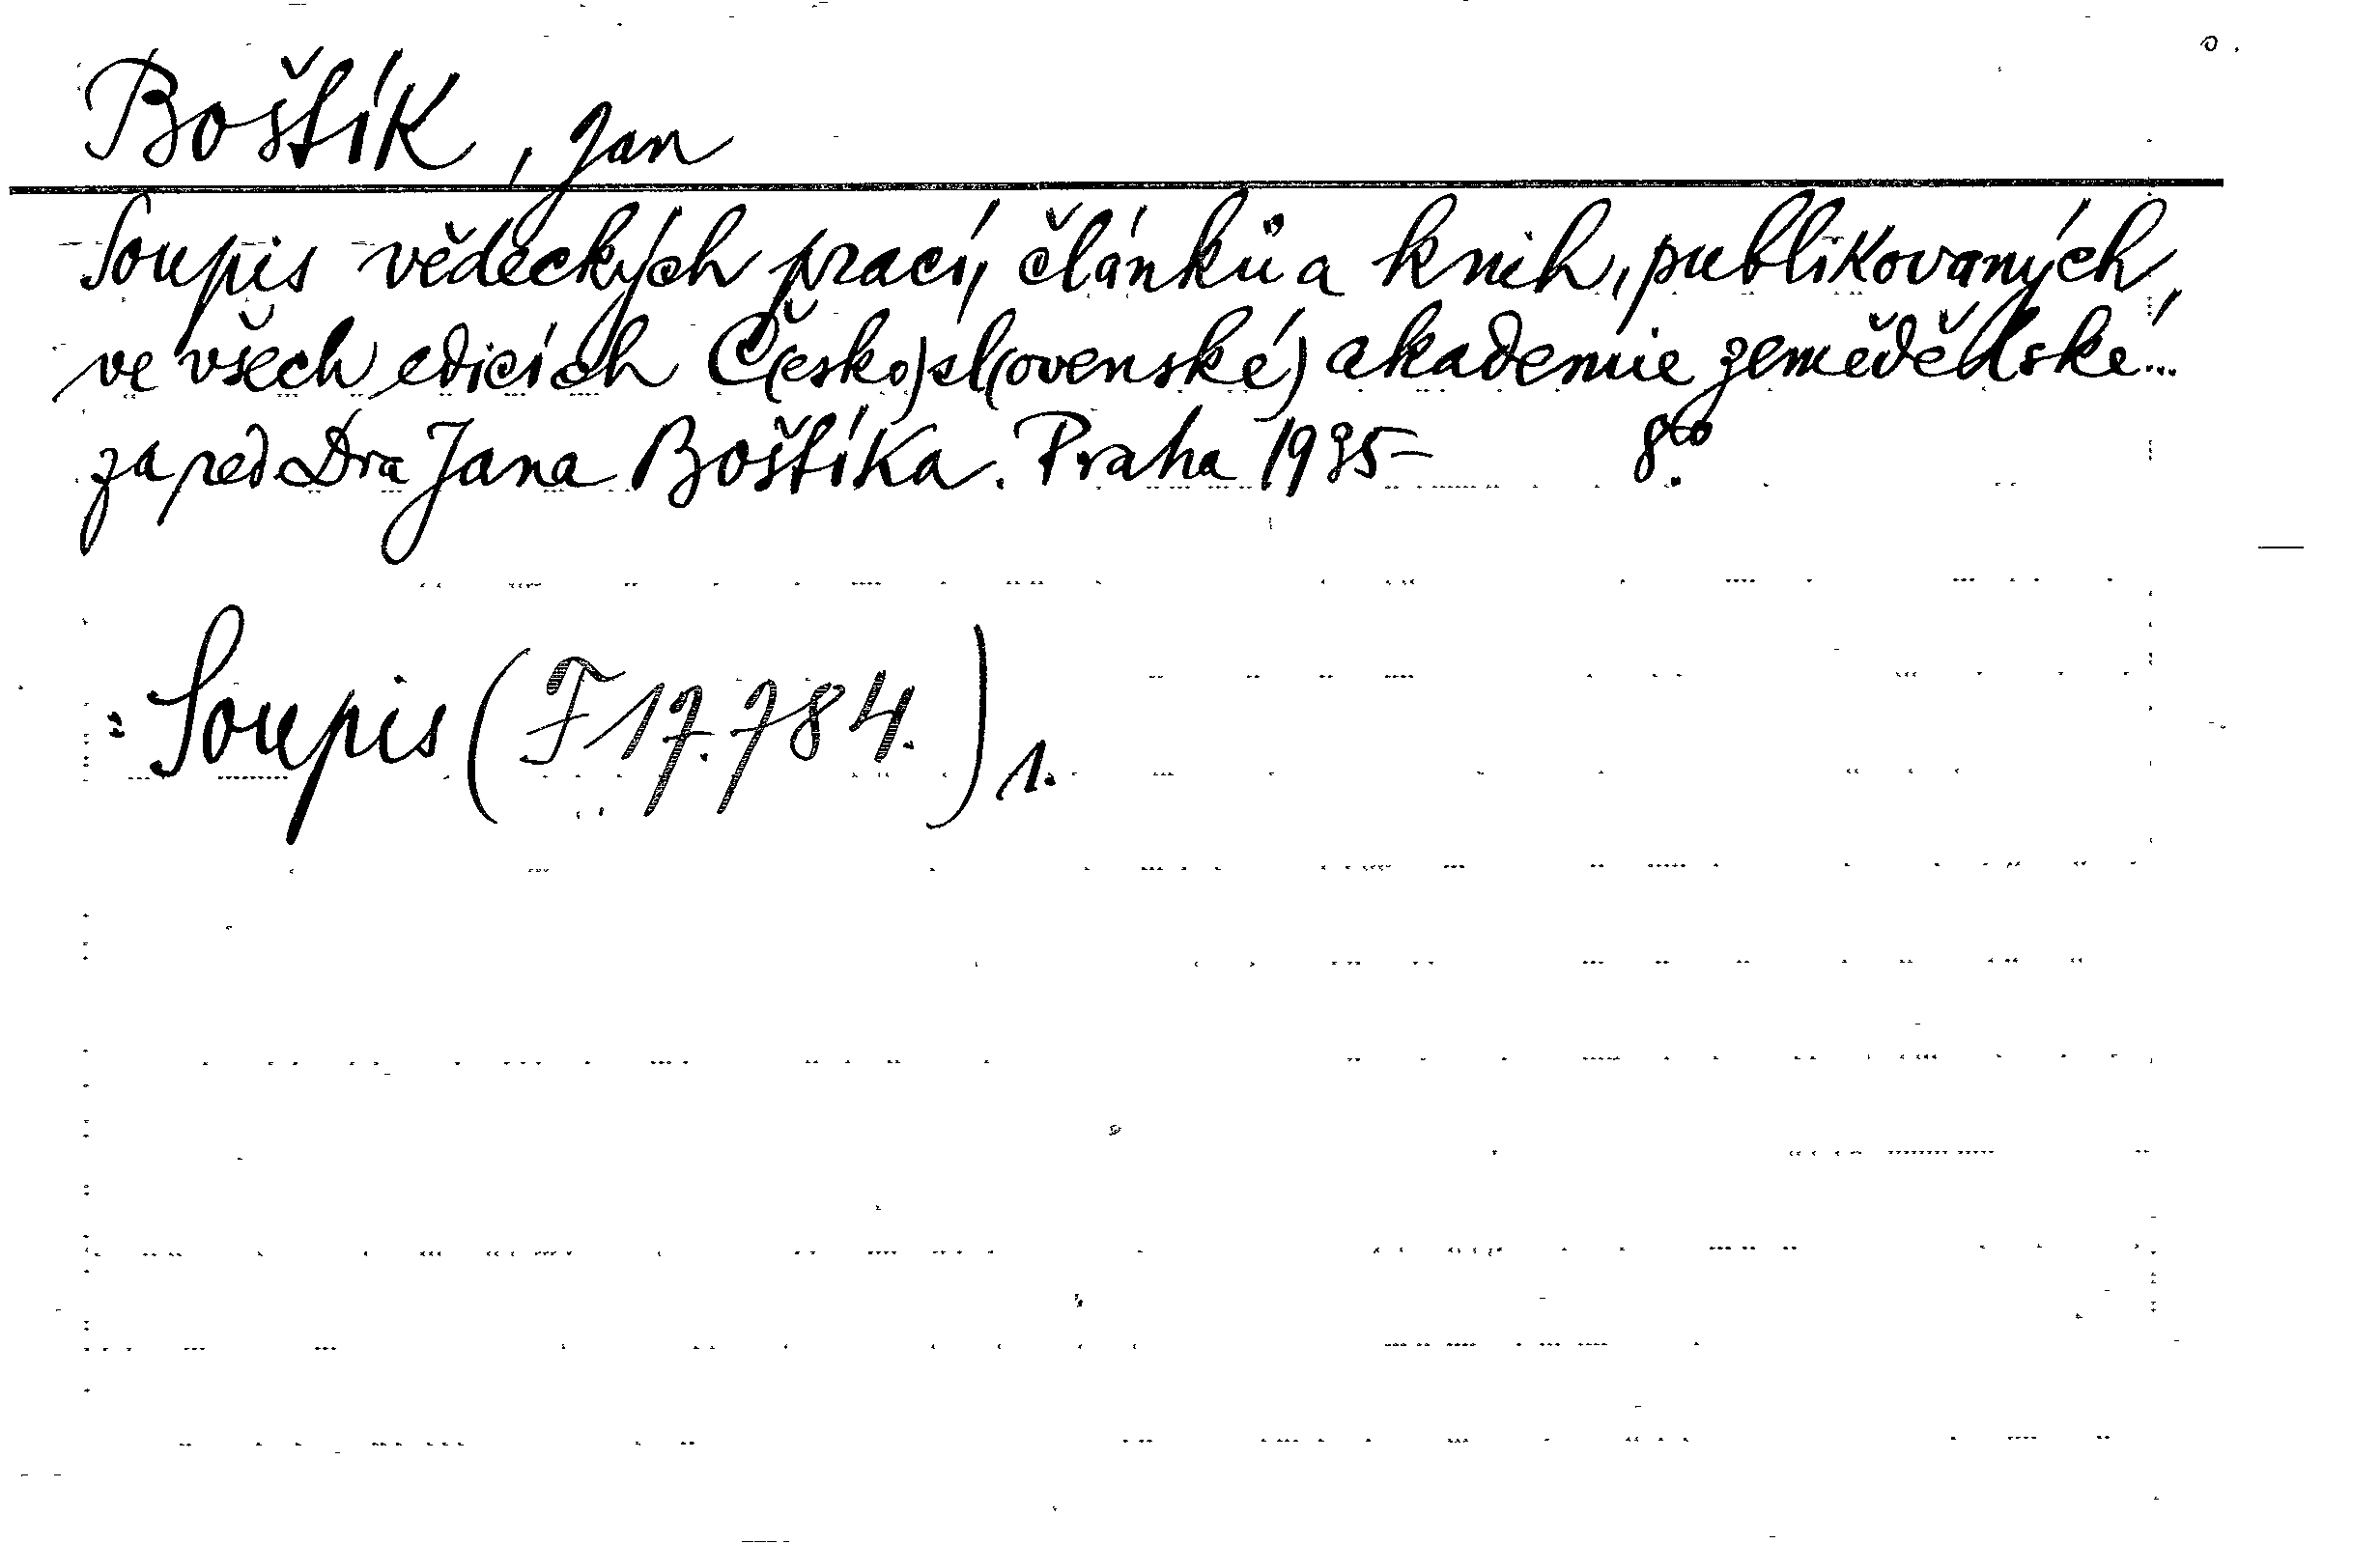 Boštík, Jan
Soupis vědeckých prací, článků a knih, publikovaných,
ve všech edicích Č(esko)sl(ovenské) akademie zemědělské...
za red Dra Jana Boštíka. Praha 1935- 8°.
: Soupis (F 17.784.) 1.